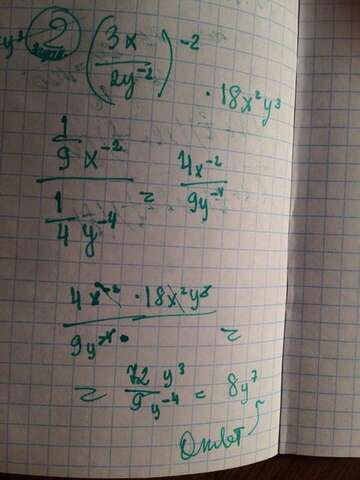 y³ 2 (3x / 2y⁻²)⁻² · 18x²y³
задан
(1/9 x⁻²) / (1/4 y⁻⁴) = 4x⁻² / 9y⁻⁴
(4x⁻² · 18x²y³) / 9y⁻⁴ =
= 72 y³ / 9 y⁻⁴ = 8y⁷
Ответ